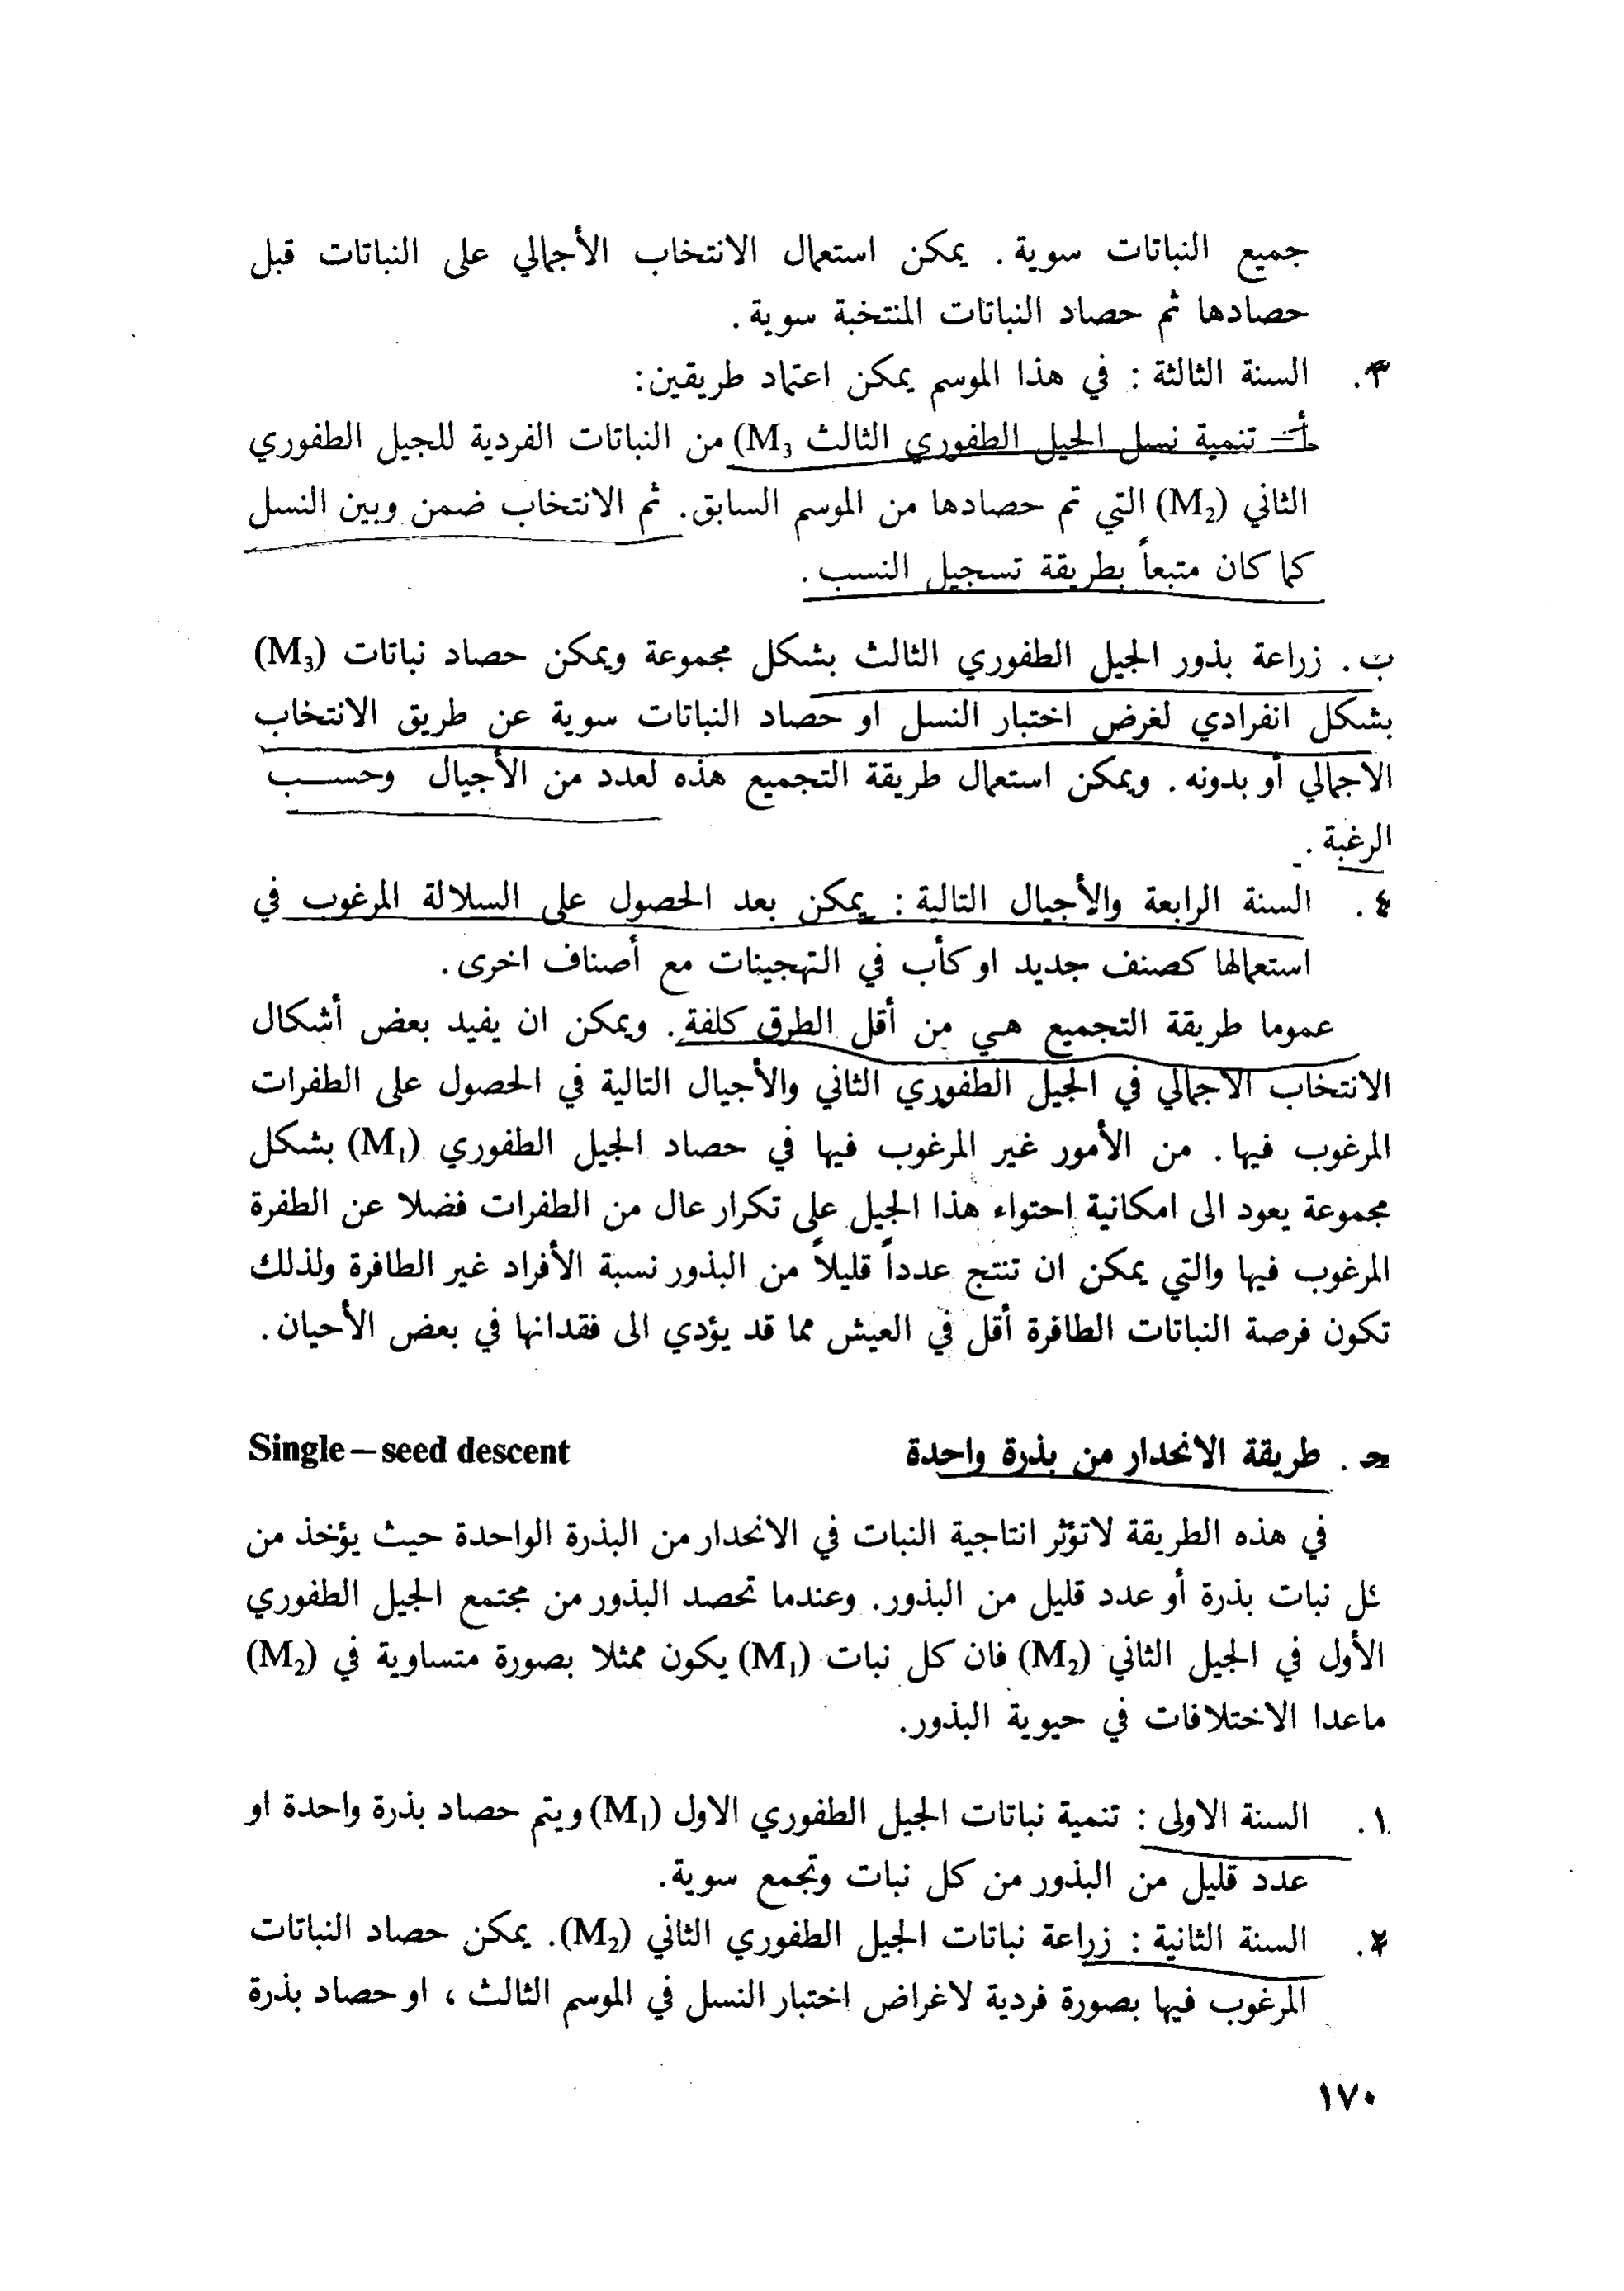 جميع النباتات سوية . يمكن استعمال الانتخاب الأجمالي على النباتات قبل
حصادها ثم حصاد النباتات المنتخبة سوية .
٣. السنة الثالثة : في هذا الموسم يمكن اعتماد طريقين:
أ ـ تنمية نسل الجيل الطفوري الثالث M₃) من النباتات الفردية للجيل الطفوري
الثاني (M₂) التي تم حصادها من الموسم السابق. ثم الانتخاب ضمن وبين النسل
كما كان متبعاً بطريقة تسجيل النسب .
ب . زراعة بذور الجيل الطفوري الثالث بشكل مجموعة ويمكن حصاد نباتات (M₃)
بشكل انفرادي لغرض اختبار النسل او حصاد النباتات سوية عن طريق الانتخاب
الاجمالي أو بدونه . ويمكن استعمال طريقة التجميع هذه لعدد من الأجيال وحسب
الرغبة .
٤ . السنة الرابعة والأجيال التالية : يمكن بعد الحصول على السلالة المرغوب في
استعمالها كصنف جديد او كأب في التهجينات مع أصناف اخرى .
عموما طريقة التجميع هي من أقل الطرق كلفة . ويمكن ان يفيد بعض أشكال
الانتخاب الاجمالي في الجيل الطفوري الثاني والأجيال التالية في الحصول على الطفرات
المرغوب فيها . من الأمور غير المرغوب فيها في حصاد الجيل الطفوري (M₁) بشكل
مجموعة يعود الى امكانية احتواء هذا الجيل على تكرار عال من الطفرات فضلا عن الطفرة
المرغوب فيها والتي يمكن ان تنتج عدداً قليلاً من البذور نسبة الأفراد غير الطافرة ولذلك
تكون فرصة النباتات الطافرة أقل في العيش مما قد يؤدي الى فقدانها في بعض الأحيان .
جـ . طريقة الانحدار من بذرة واحدة Single – seed descent
في هذه الطريقة لاتؤثر انتاجية النبات في الانحدار من البذرة الواحدة حيث يؤخذ من
كل نبات بذرة أو عدد قليل من البذور. وعندما تحصد البذور من مجتمع الجيل الطفوري
الأول في الجيل الثاني (M₂) فان كل نبات (M₁) يكون ممثلا بصورة متساوية في (M₂)
ماعدا الاختلافات في حيوية البذور.
١. السنة الاولى : تنمية نباتات الجيل الطفوري الاول (M₁) ويتم حصاد بذرة واحدة او
عدد قليل من البذور من كل نبات وتجمع سوية.
٢. السنة الثانية : زراعة نباتات الجيل الطفوري الثاني (M₂). يمكن حصاد النباتات
المرغوب فيها بصورة فردية لاغراض اختبار النسل في الموسم الثالث ، او حصاد بذرة
١٧٠